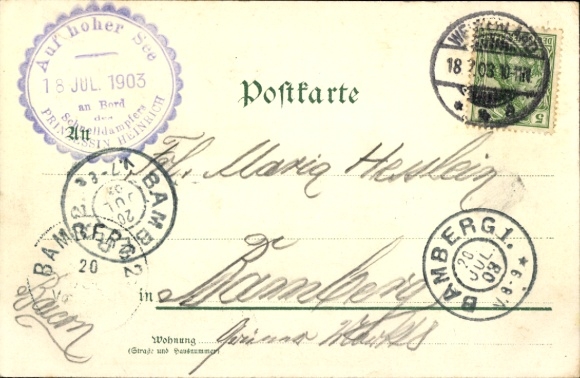 Auf hoher See
18 JUL. 1903
an Bord
des
Schnelldampfers
PRINZESSIN HEINRICH
WESTERLAND
18 7 03
5
Postkarte
An
Frl. Maria Hesslein
BAMBERG 2
20
JUL
BAMBERG 2
20
BAMBERG 1.
20
JUL.
03
V. 8-9
in Bamberg
Wohnung
(Straße und Hausnummer)